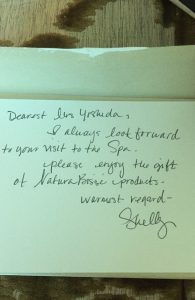 Dearest Mrs Yoshida,
I always look forward
to your visit to the Spa.
please enjoy the gift
of Natura products.
warmest regard-
Shelly